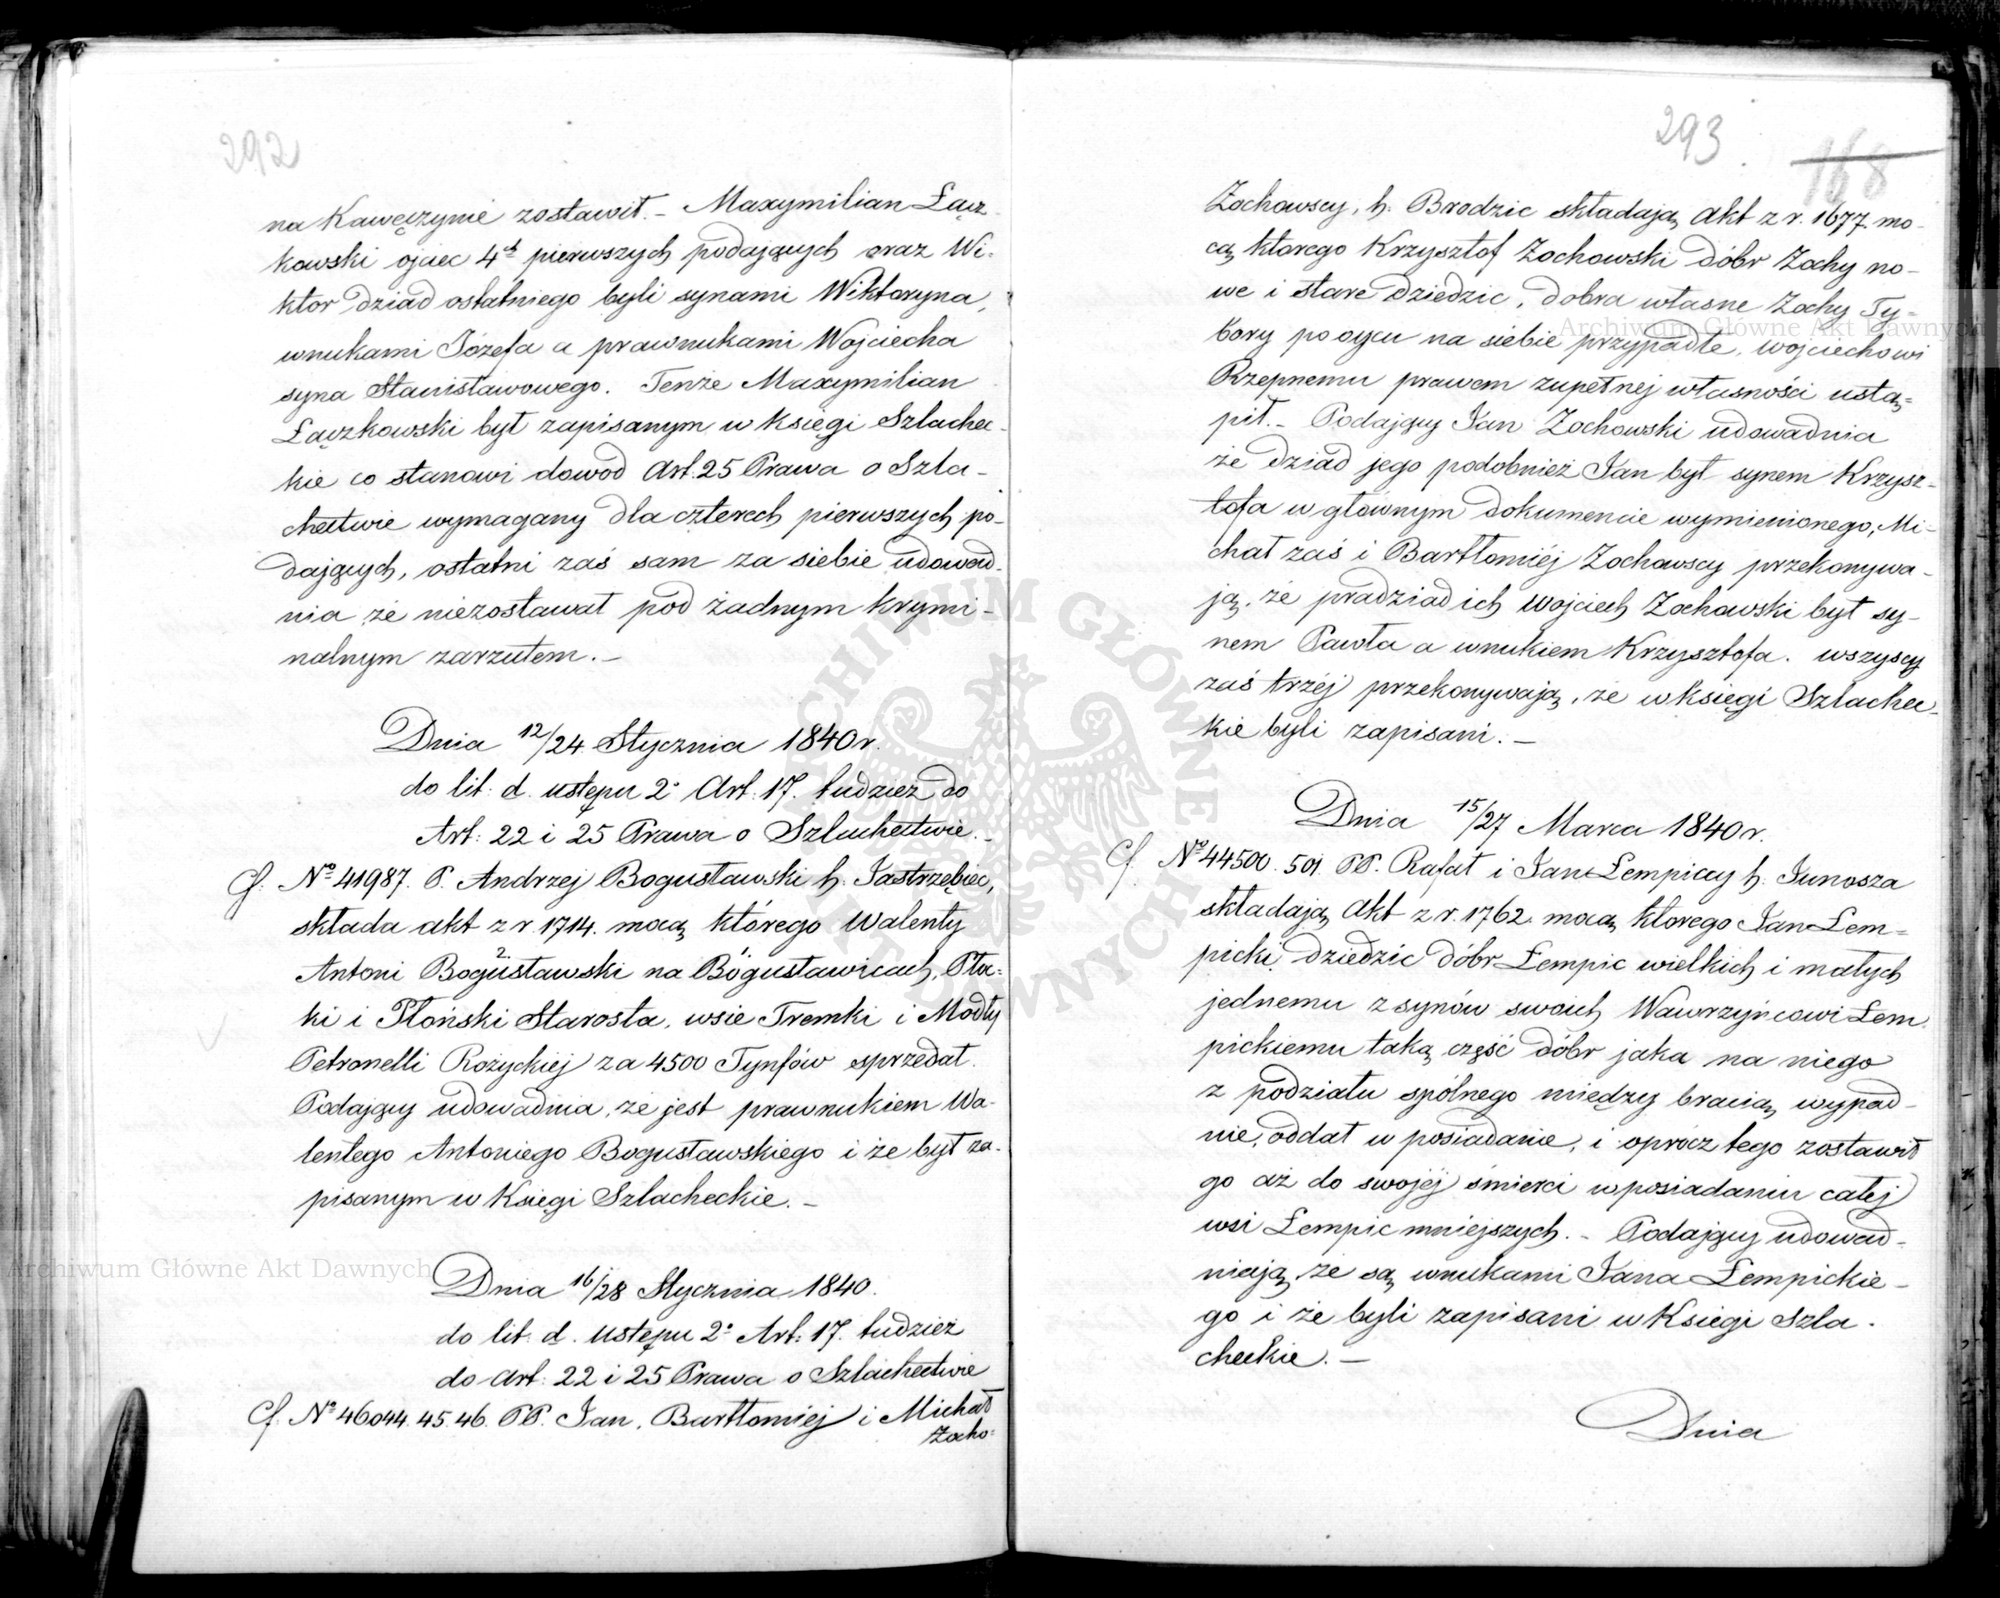 292
na Kawęczynie zostawił. – Maxymilian Łącz
kowski ojciec 4ch pierwszych podających oraz Wi-
ktor dziad ostatniego byli synami Wiktoryna,
wnukami Józefa a prawnukami Wojciecha
syna Stanisławowego. Tenże Maxymilian
Łączkowski był zapisanym w księgi Szlachec-
kie co stanowi dowód Art. 25 Prawa o Szla-
chectwie wymagany dla czterech pierwszych po-
dających, ostatni zaś sam za siebie udowad-
nia że niezostawał pod żadnym krymi-
nalnym zarzutem. –
Dnia 12/24 Stycznia 1840 r.
do lit. d. ustępu 2° Art. 17. tudzież do
Art: 22 i 25 Prawa o Szlachectwie. –
Cf. No 41987. P. Andrzej Bogusławski h. Jastrzębiec,
składa akt z r. 1714. mocą którego Walenty
Antoni Bogusławski na Bogusławicach, Pła-
ki i Płoński Starosta, wsie Tremki i Modły
Petronelli Rożyckiej za 4500 Tynfów sprzedał.
Podający udowadnia, że jest prawnukiem Wa-
lentego Antoniego Bogusławskiego i że był za-
pisanym w Księgi Szlacheckie. –
Dnia 16/28 Stycznia 1840.
do lit. d. Ustępu 2° Art: 17. tudzież
do Art: 22 i 25 Prawa o Szlachectwie
Cf. No 46044. 45. 46. PP. Jan, Bartłomiej i Michał
Żocho-
293
168
Żochowscy, h. Brodzic składają Akt z r. 1677. mo-
cą ktorego Krzysztof Żochowski dóbr Żochy no-
we i stare dziedzic, dobra własne Żochy Ty-
bory po oycu na siebie przypadłe, Wojciechowi
Rzepnemu prawem zupełnej własności ustą-
pił. – Podający Jan Żochowski udowadnia
że dziad jego podobnież Jan był synem Krzysz-
tofa w głównym dokumencie wymienionego, Mi-
chał zaś i Bartłomiéj Żochowscy przekonywa-
ją, że pradziad ich Wojciech Żochowski był sy-
nem Pawła a wnukiem Krzysztofa. wszyscy
zaś trzéj przekonywają, że w księgi Szlachec-
kie byli zapisani. –
Dnia 15/27 Marca 1840 r.
Cf. No 44500. 501. PP. Rafał i Jan Łempiccy h. Junosza
składają Akt z r. 1762. mocą ktorego Jan Łem-
picki dziedzic dóbr Łempic wielkich i małych
jednemu z synów swoich Wawrzyńcowi Łem
pickiemu taką część dóbr jaka na niego
z podziału spólnego między bracią wypad-
nie, oddał w posiadanie, i oprocz tego zostawił
go aż do swojéj śmierci w posiadaniu całej
wsi Łempic mniejszych. – Podający udowad-
niają, że są wnukami Jana Łempickie-
go i że byli zapisani w Księgi Szla-
checkie. –
Dnia
Archiwum Główne Akt Dawnych
Archiwum Główne Akt Dawnych
ARCHIWUM GŁÓWNE AKT DAWNYCH